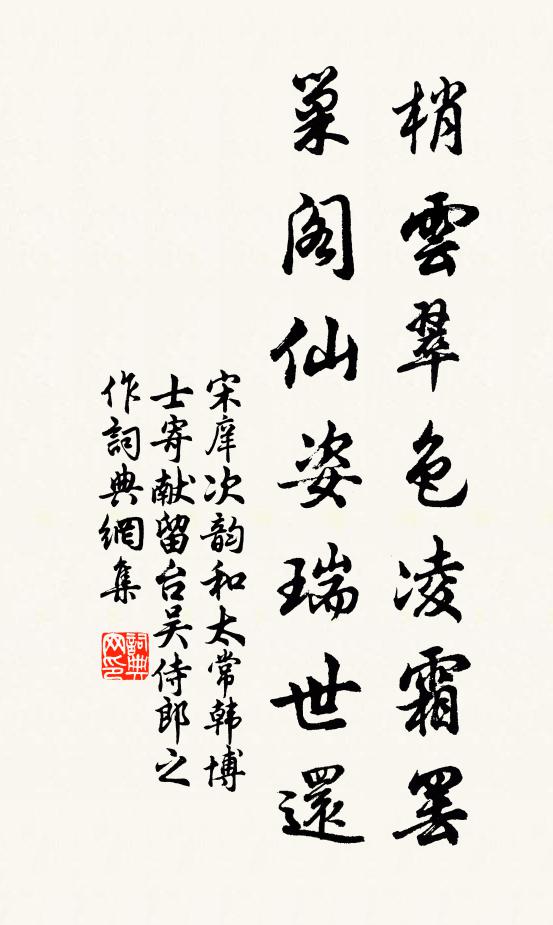 梢雲翠色凌霜罢
巢阁仙姿瑞世還
宋庠次韵和太常韩博
士寄献留台吴侍郎之
作詞典網集
詞典
网印